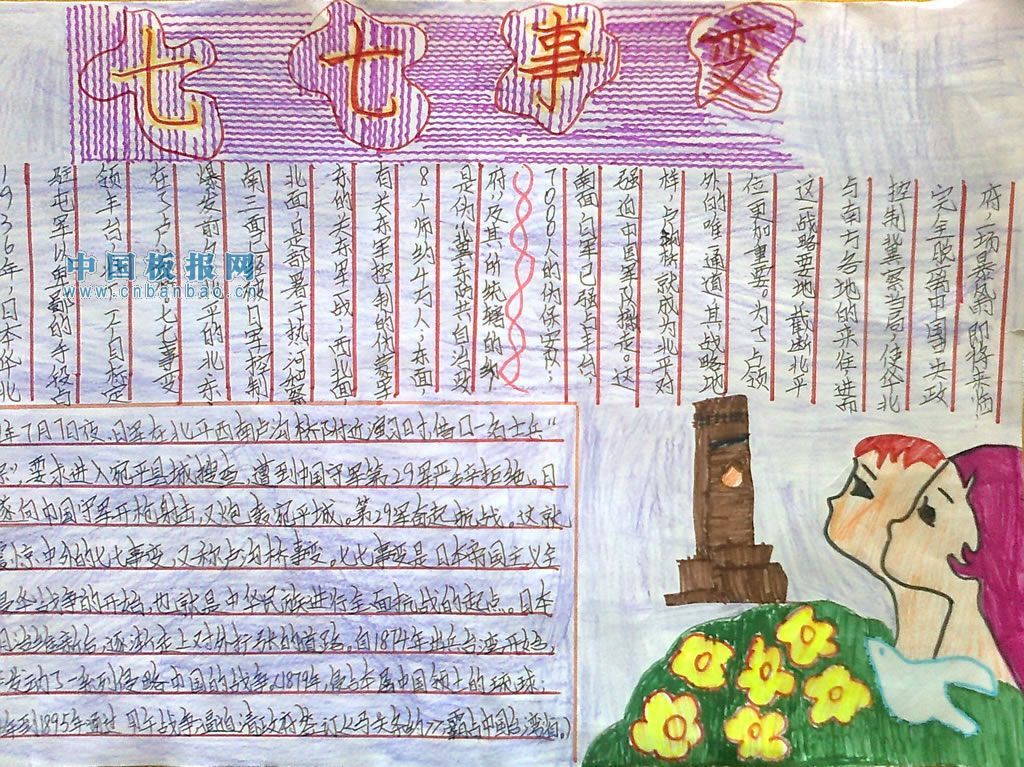 七七事变
1936年,日本华北
驻屯军以
领丰台,
七七事变
爆发前夕,北平的北东
南三面已被日军控制
北面,是部署于热河和察
东的关东军一战,西北面,
有关东军控制的伪蒙军
8个师约4万人,东面
是伪冀东防共自治政
府,及其所统辖的约
7000人的伪保安队,
南面日军已强占丰台,
强迫中国军队撤走。这
样,卢沟桥就成为北平对
外的唯一通道,其战略地
位更加重要。为了占领
这战略要地,截断北平
与南方各地的来往,进而
控制冀察当局,使华北
完全脱离中国 央政
府,一场暴风即将来临
年7月7日夜,日军在北平西南卢沟桥附近演习时,借口一名士兵“
”要求进入宛平县城搜查,遭到中国守军第29军严辞拒绝。日
遂向中国守军开枪射击,又炮轰宛平城。第29军奋起抗战。这就
震惊中外的七七事变,又称卢沟桥事变。七七事变是日本帝国主义全
侵华战争的开始,也就是中华民族进行全面抗战的起点。日本
明治维新后,逐渐走上对外扩张的道路。自1874年出兵台湾开始,
发动了一系列侵略中国的战争。1879年,侵占本属中国领土的琉球;
年到1895年通过甲午战争逼迫清政府签订《马关条约》,霸占中国台湾
中国板报网
www.cnbanbao.cn